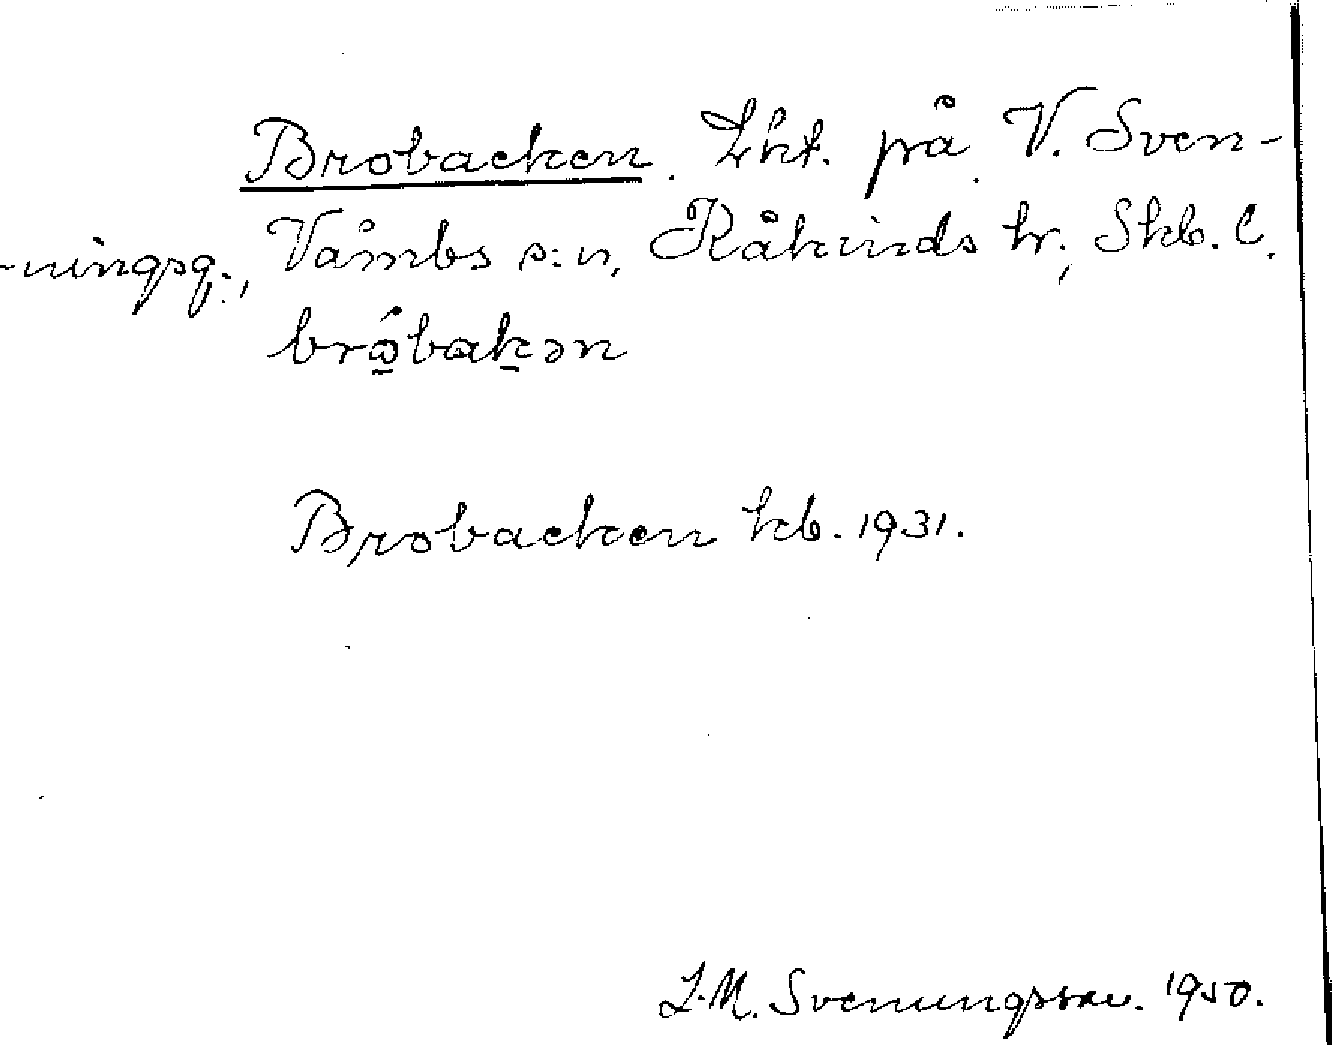 Brobacken. Lht. på V. Sven-
-ningsg:, Våmbs s:n, Kåkinds hr., Skb. l.
brobakən
Brobacken kb. 1931.
J.M. Svenungsson. 1950.